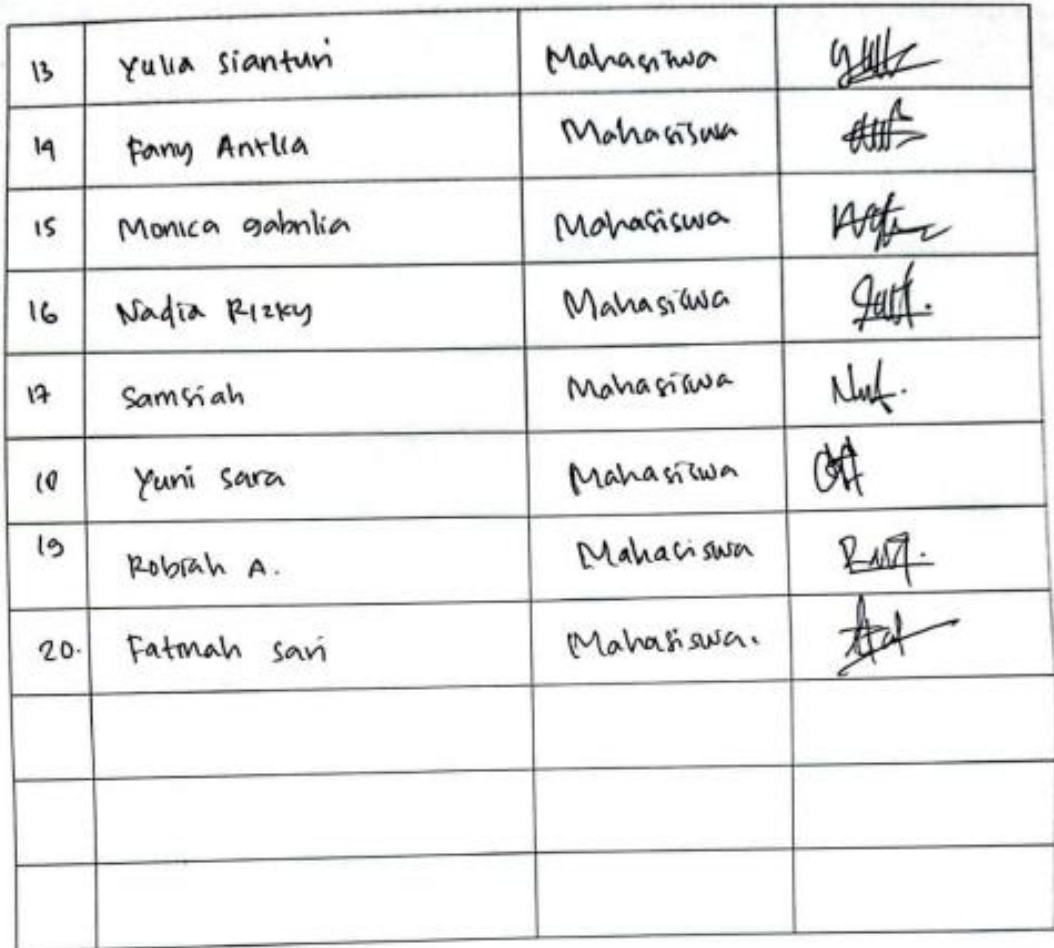 13 Yulia Sianturi Mahasiswa
14 Fany Antlia Mahasiswa
15 Monica gabrilia Mahasiswa
16 Nadia Rizky Mahasiswa
17 Samsiah Mahasiswa
18 Yuni Sara Mahasiswa
19 Robiah A. Mahasiswa
20. Fatmah Sari Mahasiswa.